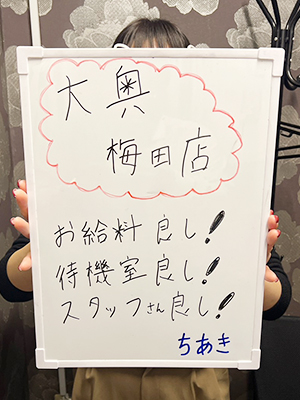 大奥
梅田店
お給料良し!
待機室良し!
スタッフさん良し!
ちあき